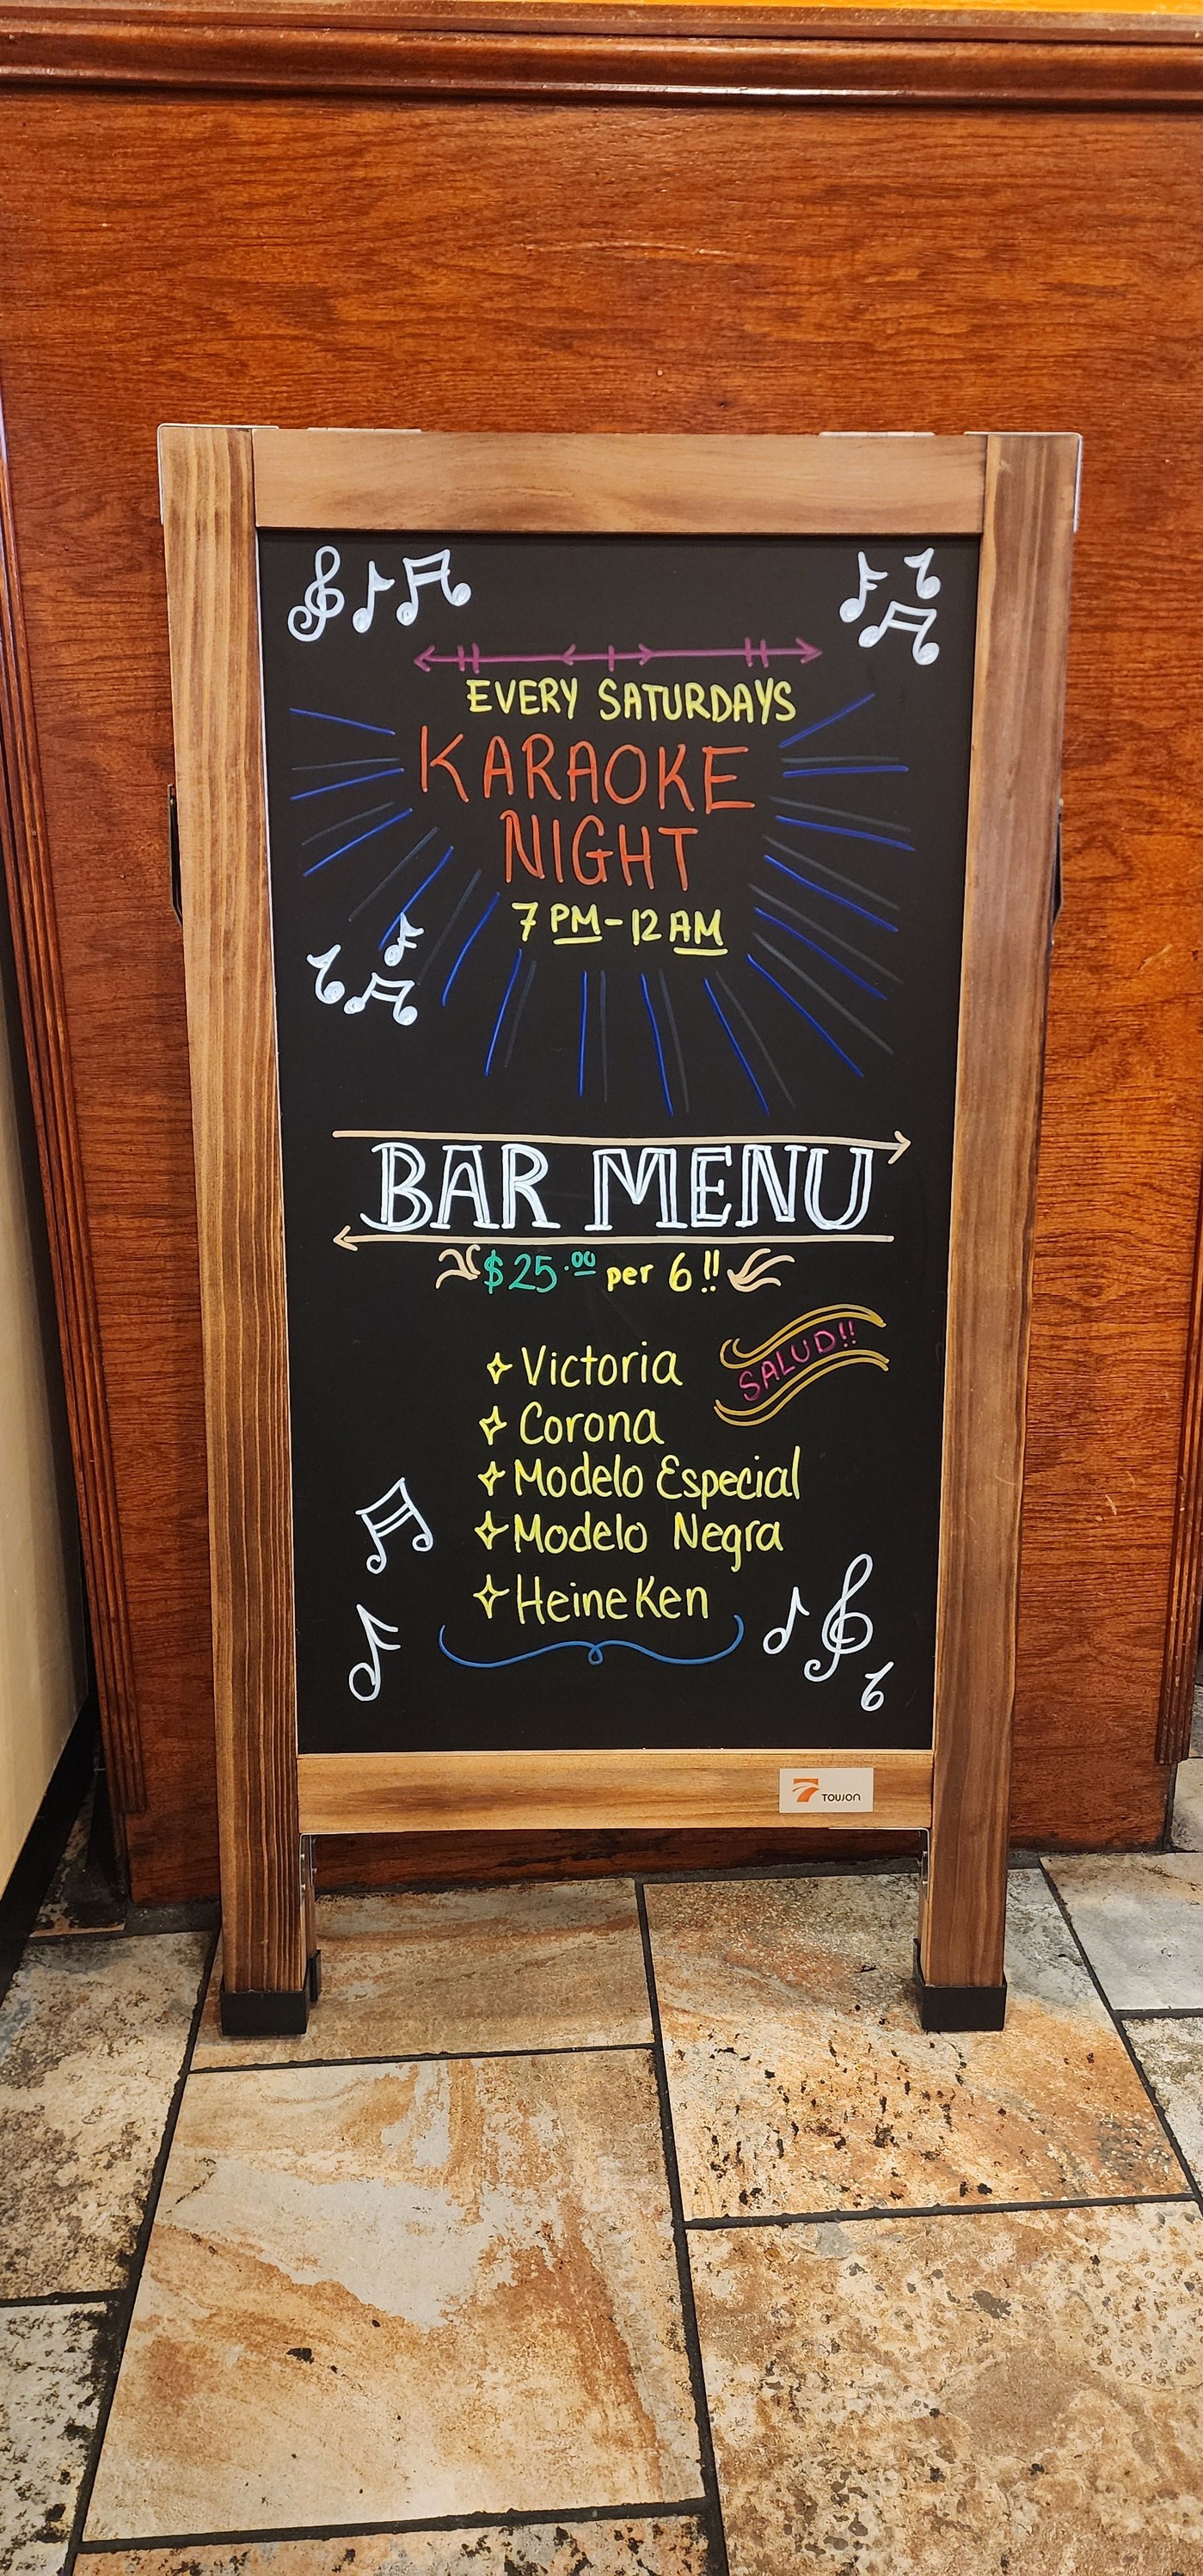 EVERY SATURDAYS
KARAOKE
NIGHT
7 PM-12 AM
BAR MENU
$25.00 per 6!!
SALUD!!
Victoria
Corona
Modelo Especial
Modelo Negra
HeineKen
TOUJON